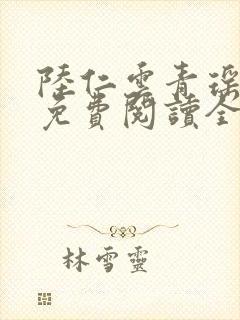 陸仁雲青瑤
免費閱讀全
林雪靈